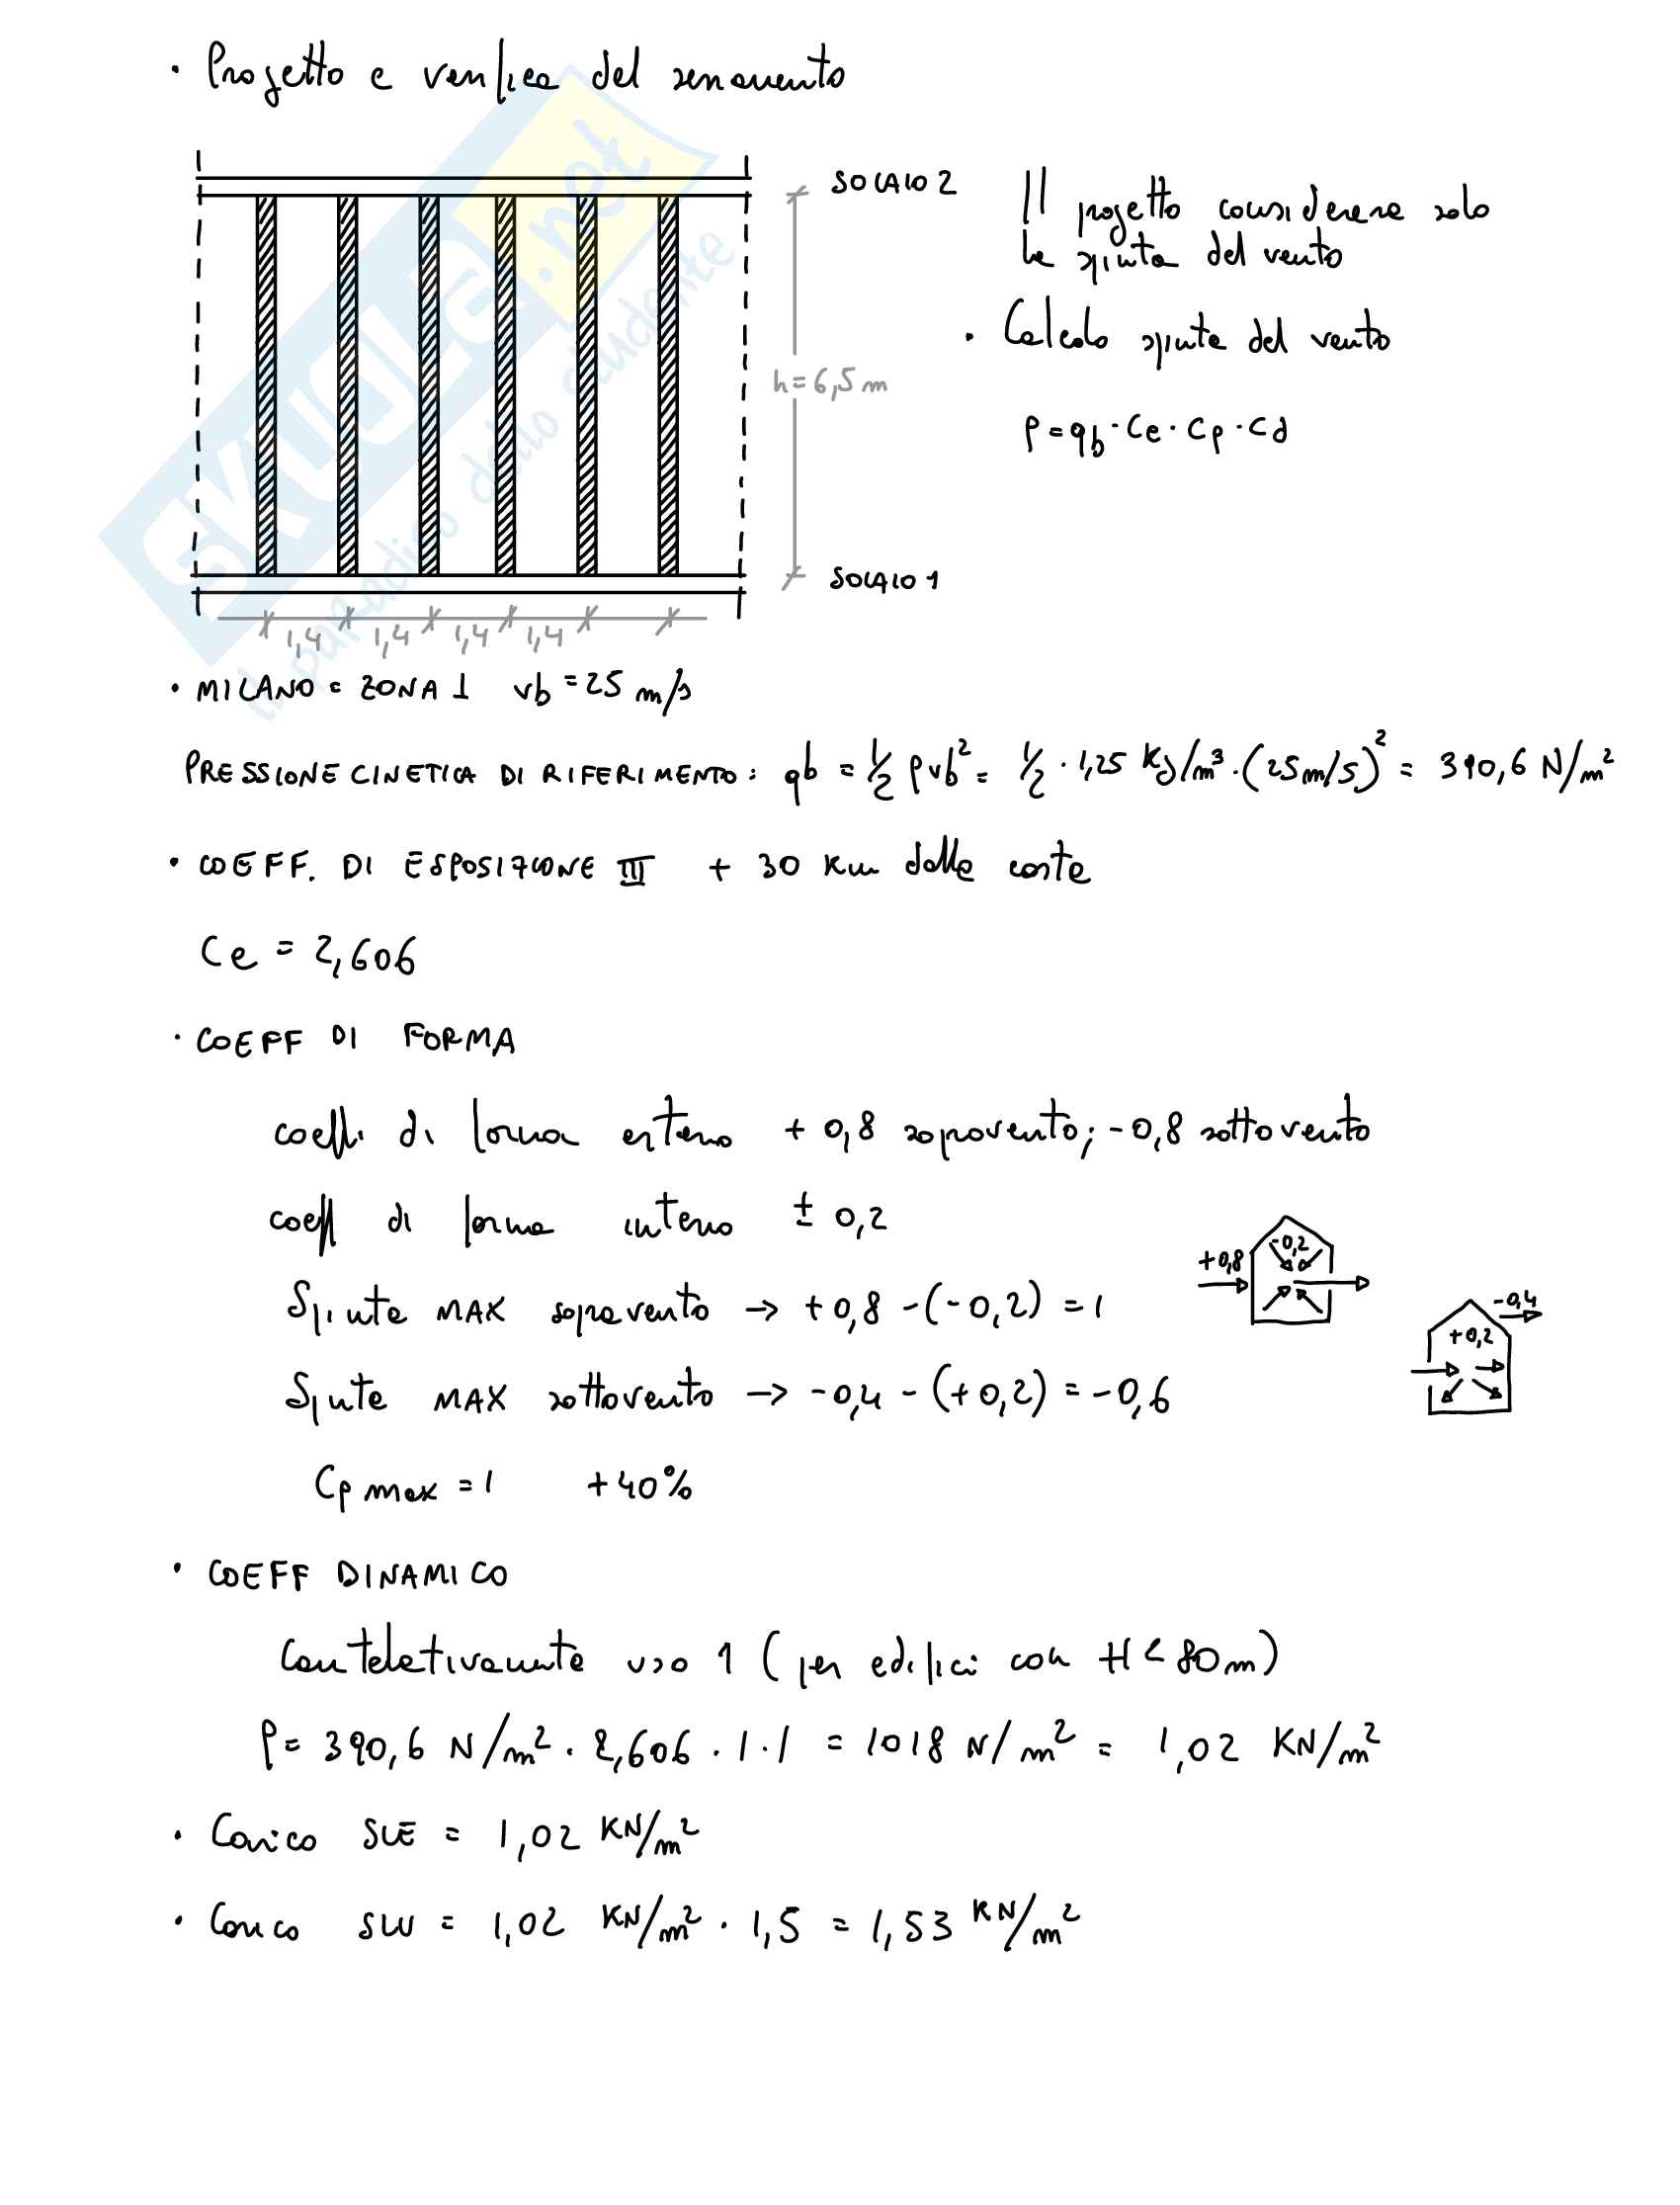 · Progetto e verifica del serramento
SOLAIO 2
Il progetto considererà solo
la spinta del vento
· Calcolo spinta del vento
h=6,5 m
P = qb · Ce · Cp · Cd
SOLAIO 1
1,4 1,4 1,4 1,4
SKUOLA.net
il paradiso dello studente
· MILANO = ZONA 1 vb = 25 m/s
PRESSIONE CINETICA DI RIFERIMENTO: qb = 1/2 ρvb² = 1/2 · 1,25 Kg/m³ · (25m/s)² = 390,6 N/m²
· COEFF. DI ESPOSIZIONE III + 30 Km dalla costa
Ce = 2,606
· COEFF DI FORMA
coeff. di forma esterno + 0,8 sopravento; -0,8 sottovento
coeff di forma interno ± 0,2
+0,8 -0,2
Spinta MAX sopravento → +0,8 -(-0,2) = 1
-0,4
+0,2
Spinta MAX sottovento → -0,4 - (+0,2) = -0,6
Cp max = 1 +40%
· COEFF DINAMICO
Cautelativamente uso 1 (per edifici con H < 80m)
P = 390,6 N/m² · 2,606 · 1 · 1 = 1018 N/m² = 1,02 KN/m²
· Carico SLE = 1,02 KN/m²
· Carico SLU = 1,02 KN/m² · 1,5 = 1,53 KN/m²